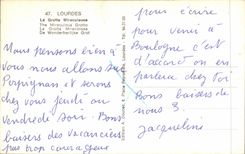 47. LOURDES
La Grotte Miraculeuse
The Miraculous Grotto
La Gruta Milagrosa
De Wonderbarlijke Grot
Nous pensons bien à
vous nous allons sur
Perpignan et serons
chez vous jeudi ou
vendredi soir. Bons
baisers des vacanciers
pas trop courageux
pour écrire
pour venir à
Boulogne c'est
d'accord on en
parlera chez toi
Bons baisers de
nous 3.
Jacqueline